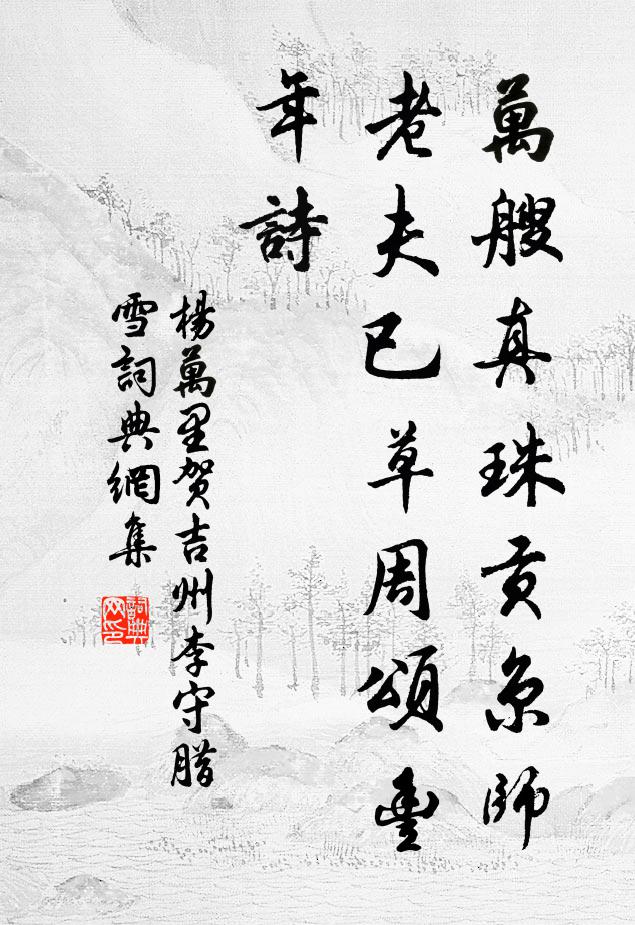 萬艘真珠貢京師
老夫已草周頌豐
年詩
楊萬里贺吉州李守腊
雪詞典網集
詞典网印